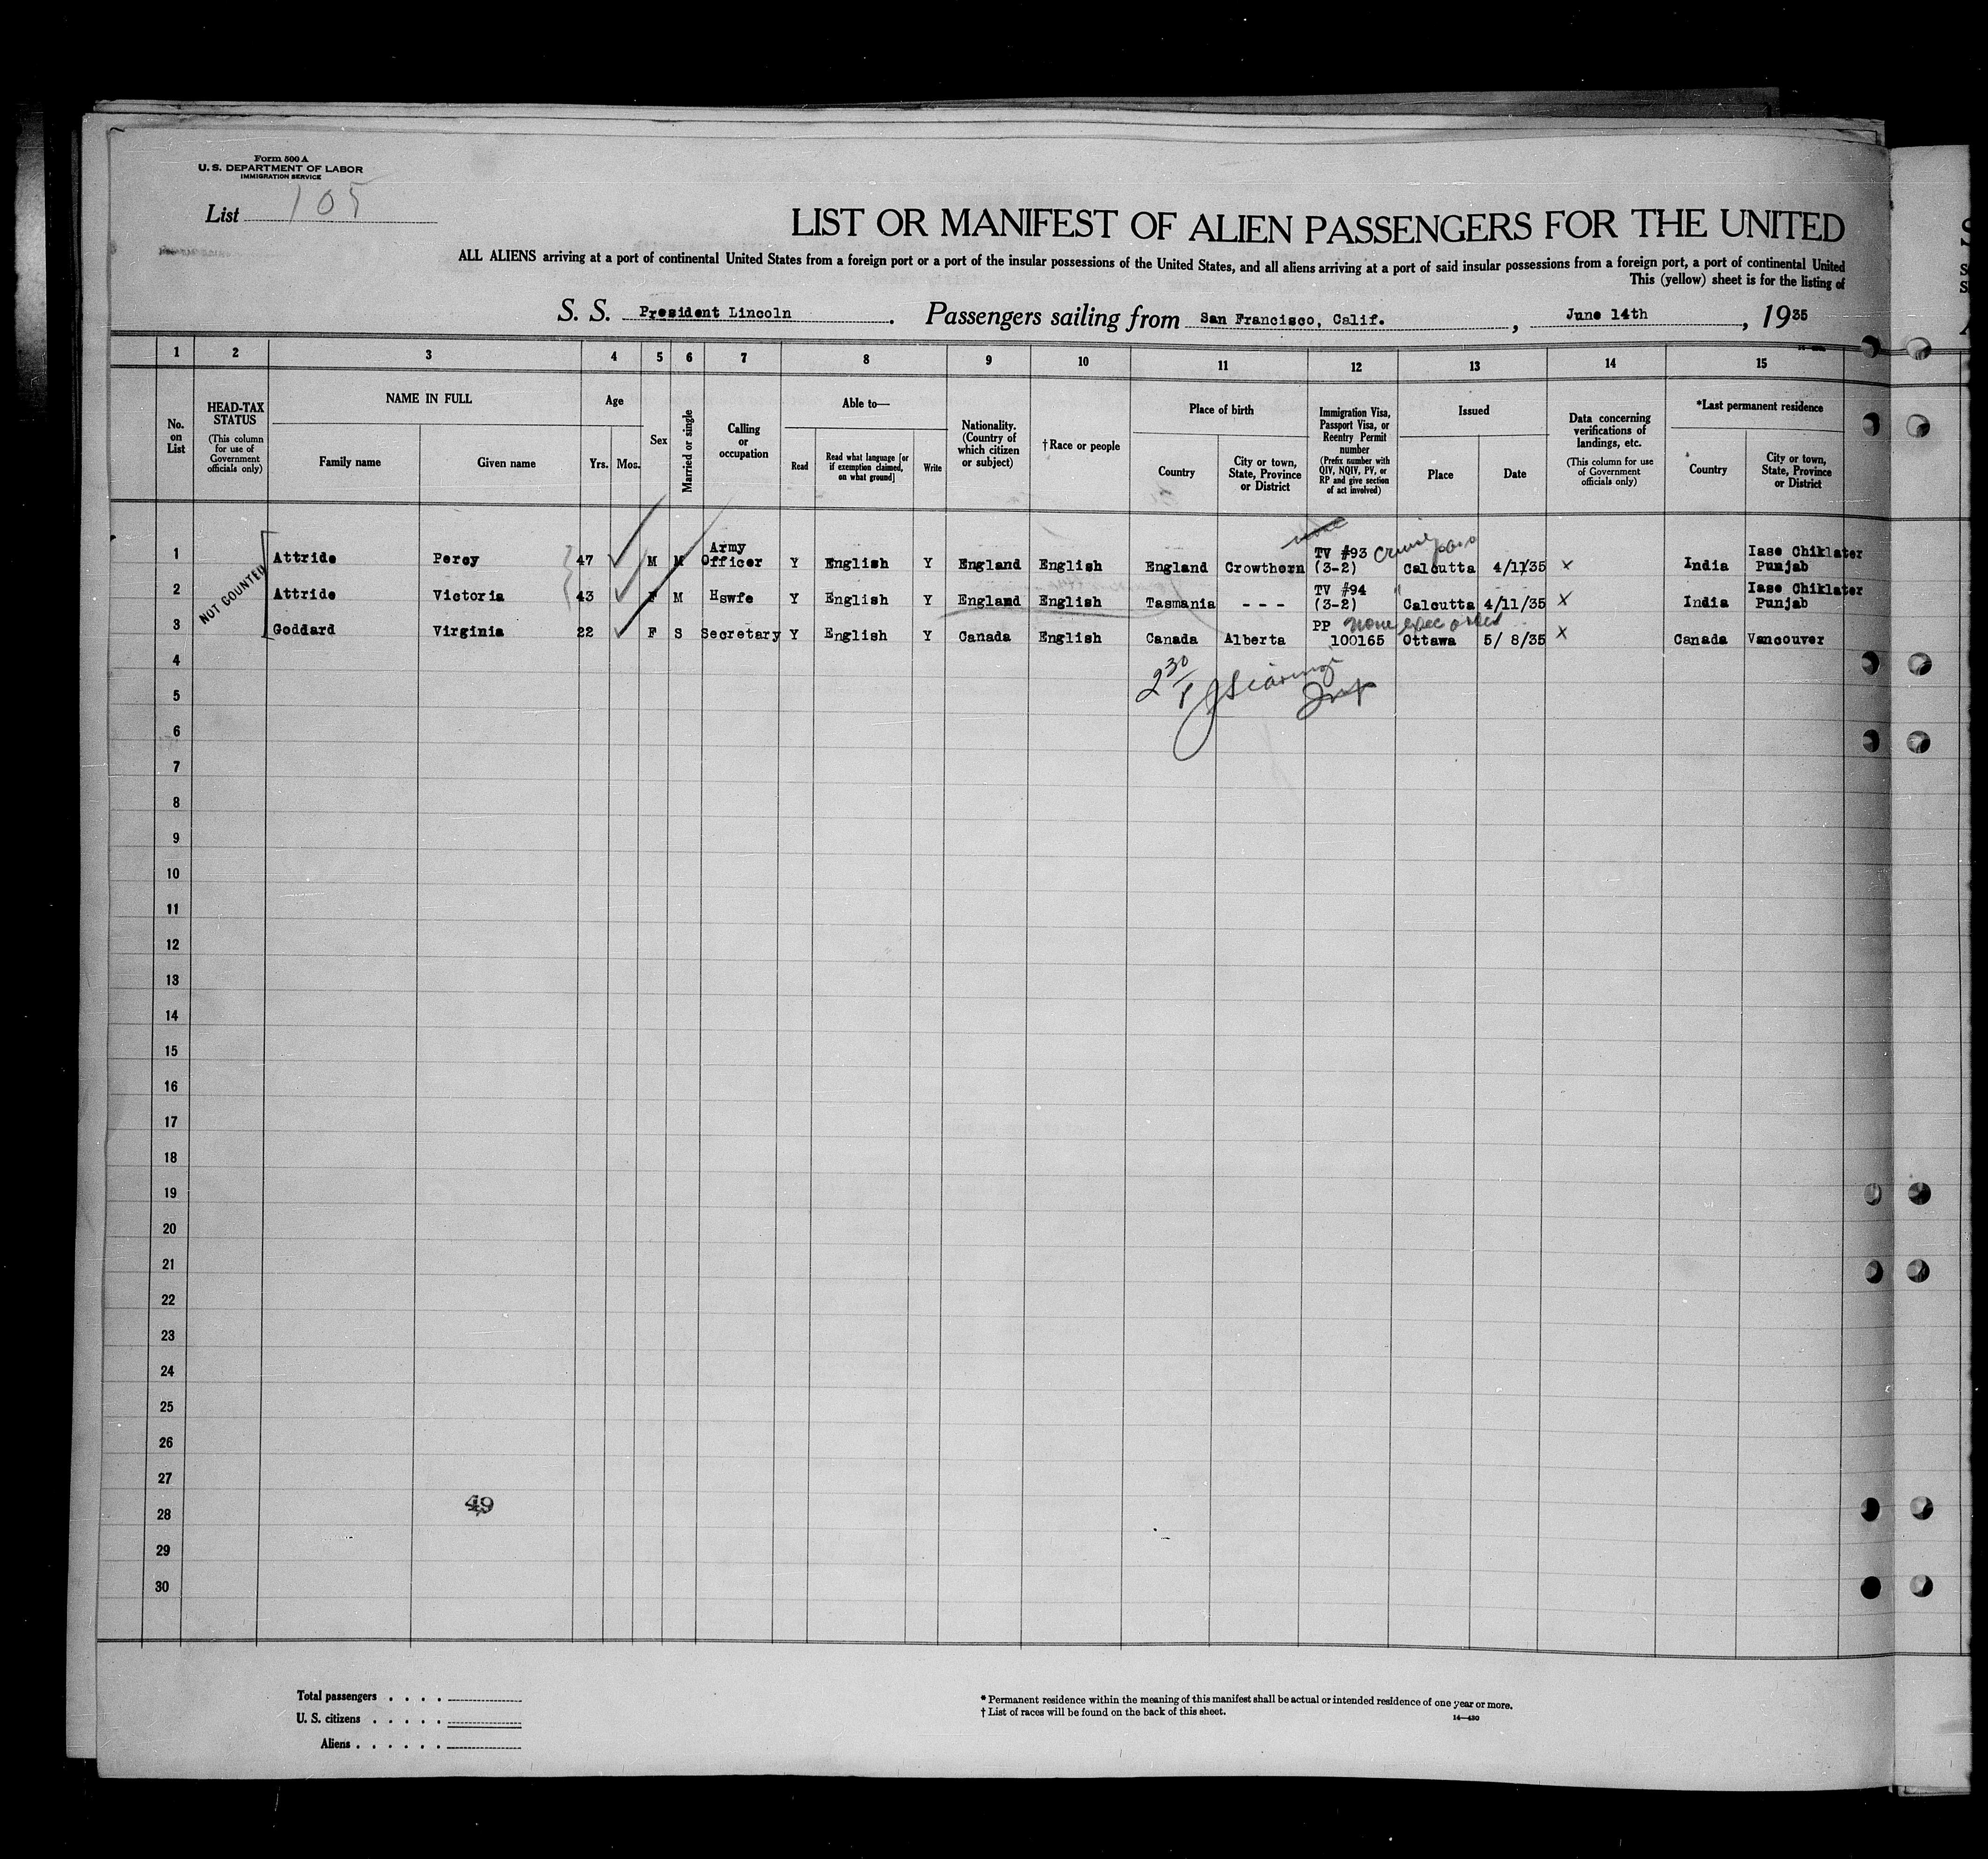 Form 500 A
U. S. DEPARTMENT OF LABOR
IMMIGRATION SERVICE
List 105
LIST OR MANIFEST OF ALIEN PASSENGERS FOR THE UNITED
ALL ALIENS arriving at a port of continental United States from a foreign port or a port of the insular possessions of the United States, and all aliens arriving at a port of said insular possessions from a foreign port, a port of continental United
This (yellow) sheet is for the listing of
S. S. President Lincoln. Passengers sailing from San Francisco, Calif., June 14th, 1935
1 2 3 4 5 6 7 8 9 10 11 12 13 14 15
No. on List
HEAD-TAX STATUS
(This column for use of Government officials only)
NAME IN FULL
Family name
Given name
Age
Yrs.
Mos.
Sex
Married or single
Calling or occupation
Able to—
Read
Read what language [or if exemption claimed, on what ground]
Write
Nationality. (Country of which citizen or subject)
†Race or people
Place of birth
Country
City or town, State, Province or District
Immigration Visa, Passport Visa, or Reentry Permit number
(Prefix number with QIV, NQIV, PV, or RP and give section of act involved)
Issued
Place
Date
Data concerning verifications of landings, etc.
(This column for use of Government officials only)
*Last permanent residence
Country
City or town, State, Province or District
NOT COUNTED
1 Attride Percy 47 M M Army Officer Y English Y England English England Crowthorn TV #93 (3-2) Calcutta 4/11/35 x India Iase Chiklater Punjab
2 Attride Victoria 43 F M Hswfe Y English Y England English Tasmania - - - TV #94 (3-2) " Calcutta 4/11/35 x India Iase Chiklater Punjab
3 Goddard Virginia 22 F S Secretary Y English Y Canada English Canada Alberta PP 100165 none exec order Ottawa 5/ 8/35 x Canada Vancouver
4
5
6
7
8
9
10
11
12
13
14
15
16
17
18
19
20
21
22
23
24
25
26
27
28
29
30
49
Total passengers . . . .
U. S. citizens . . . . .
Aliens . . . . . .
* Permanent residence within the meaning of this manifest shall be actual or intended residence of one year or more.
† List of races will be found on the back of this sheet.
14—430